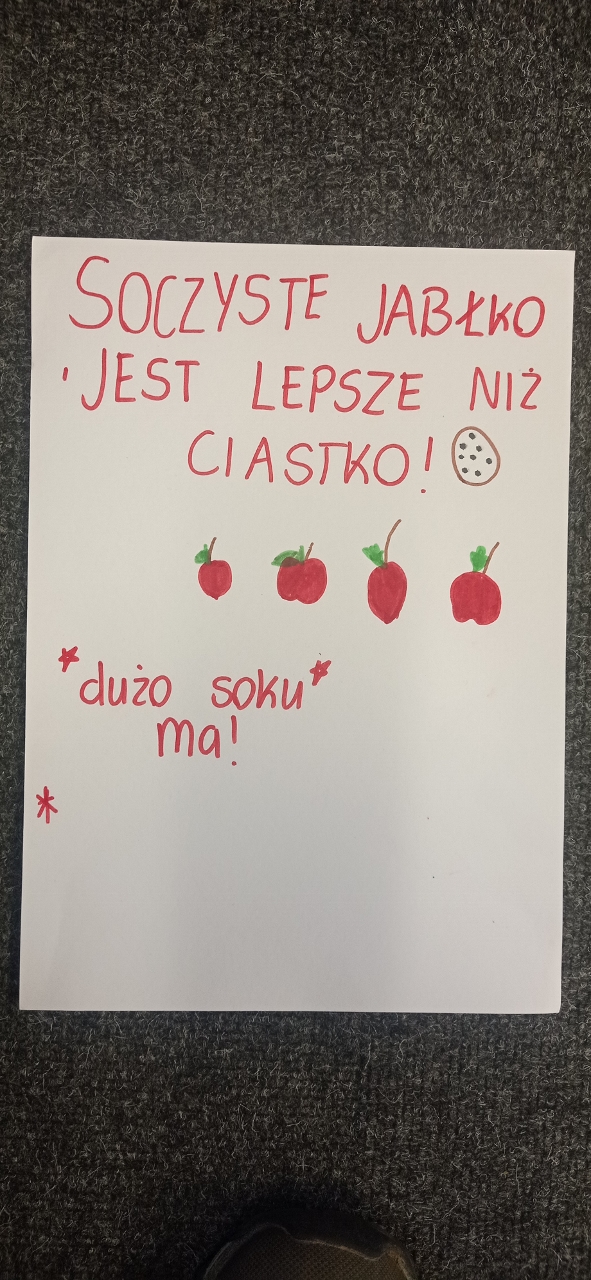 SOCZYSTE JABŁKO
JEST LEPSZE NIŻ
CIASTKO!
*dużo soku*
ma!
*